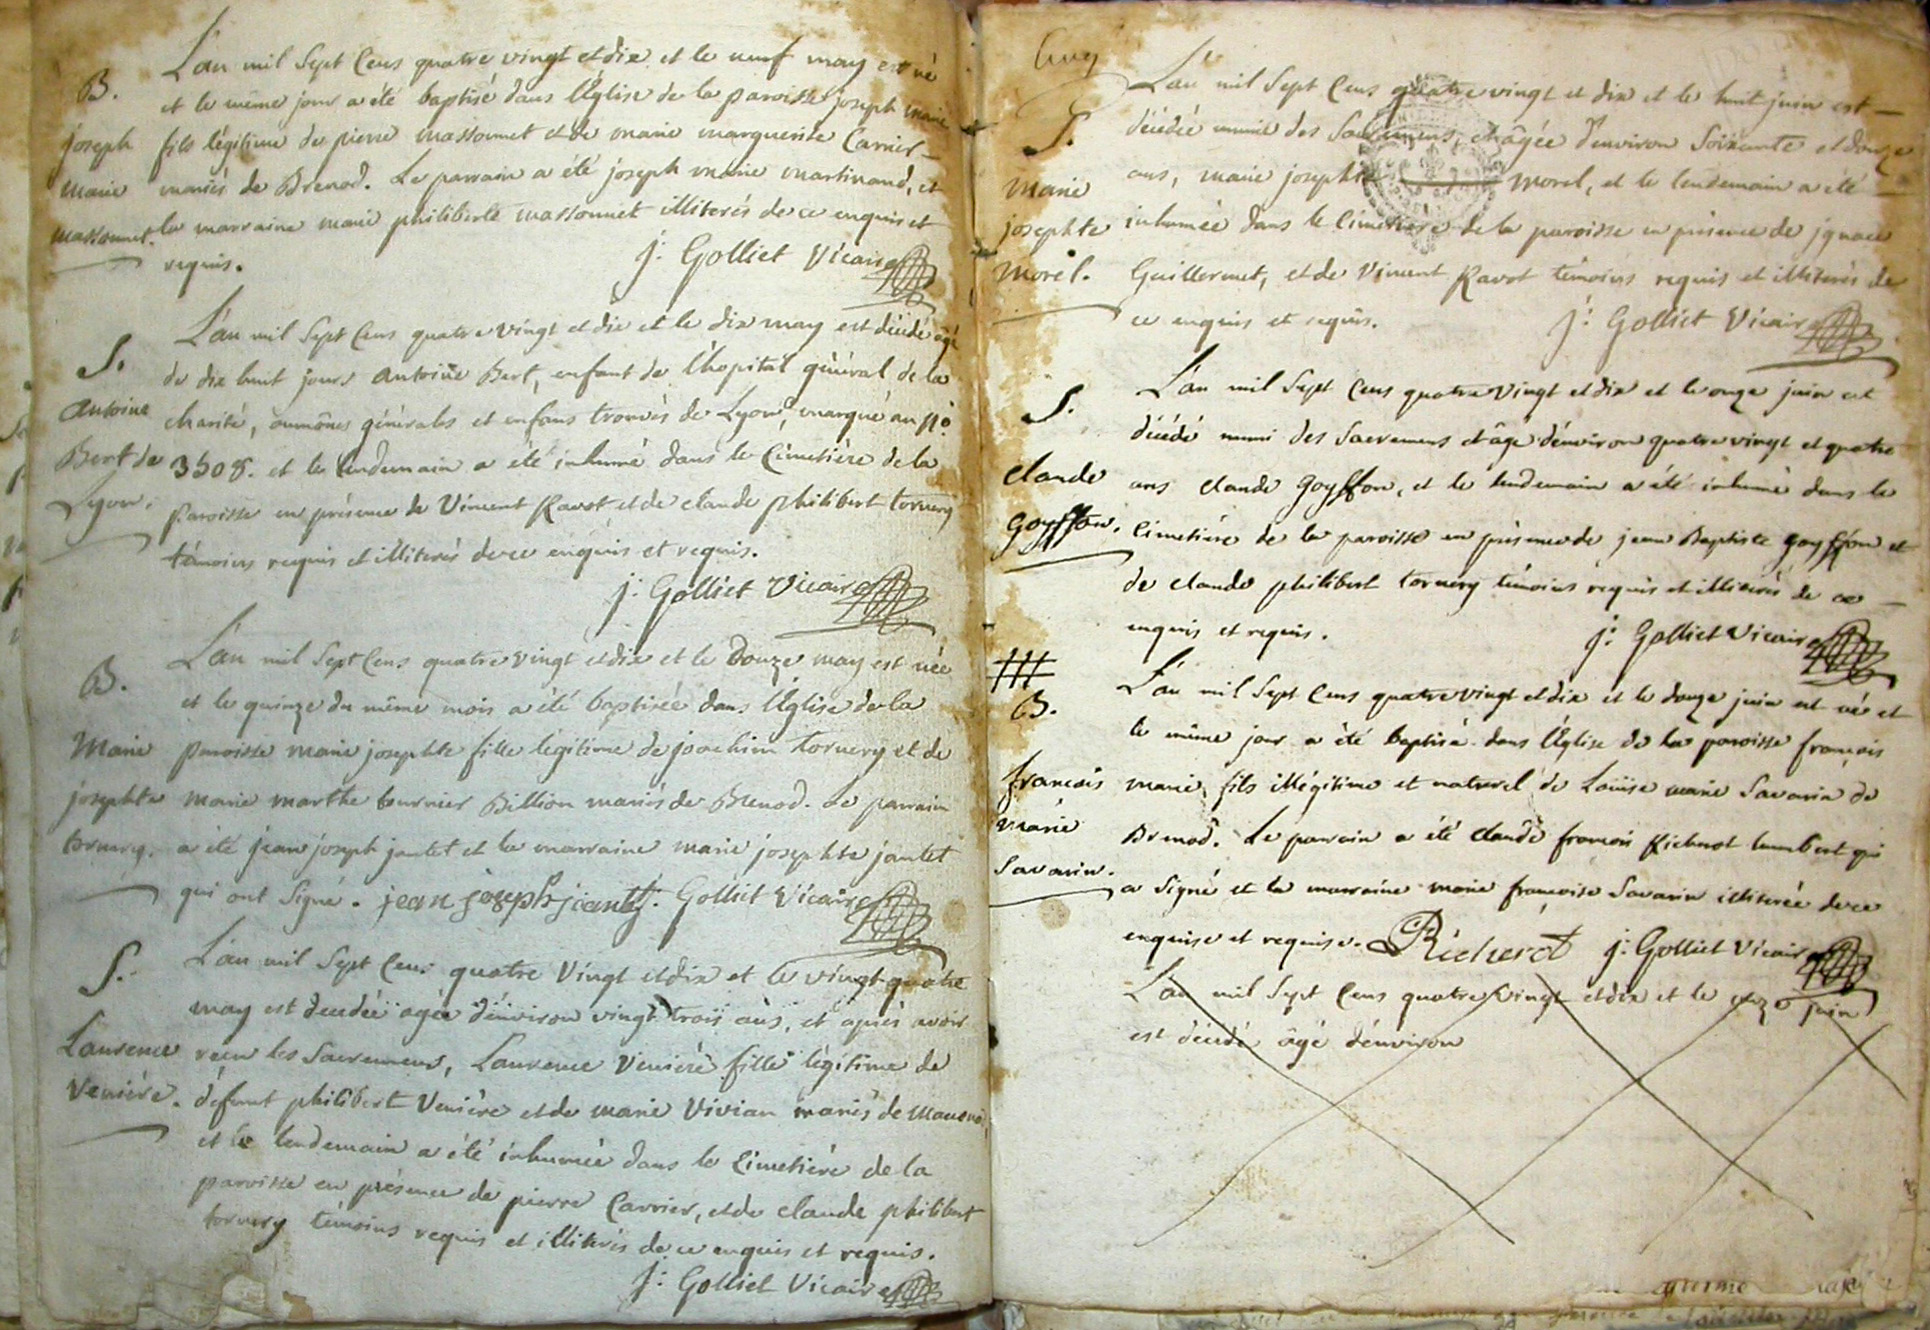 L'an mil Sept Cens quatre vingt et dix et le neuf may est né
B.
et le même jour a été baptisé dans l'Église de la paroisse joseph marie
joseph
fils légitime de pierre massonnet et de marie marguerite Carrier
marie
mariés de Brenod. Le parrain a été joseph marie martinand, et
massonnet.
la marraine marie philiberte massonnet illiterés de ce enquis et
requis.
j: Golliet Vicaire
L'an mil Sept Cens quatre vingt et dix et le dix may est décédé âgé
S.
de dix huit jours antoine Bert, enfant de l'hopital général de la
antoine
charité, aumônes générales et enfans trouvés de Lyon, marqué au no.
Bert de
3508. et le lendemain a été inhumé dans le Cimetière de la
Lyon.
paroisse en présence de Vincent Ravot et de claude philibert tornery
témoins requis et illiterés de ce enquis et requis.
j: Golliet Vicaire
L'an mil Sept Cens quatre vingt et dix et le Douze may est née
B.
et le quinze du même mois a été baptisée dans l'Église de la
Marie
paroisse marie josephte fille légitime de joachim tornery et de
josephte
marie marthe tournier Billion mariés de Brenod. Le parrain
tornery.
a été jean joseph jantet et la marraine marie josephte jantet
qui ont Signé. jean joseph jiantet j: Golliet Vicaire
L'an mil Sept Cens quatre Vingt et dix et le vingt quatre
S.
may est decedée agée d'environ vingt trois ans, et après avoir
Laurence
reçu les Sacremens, Laurence Venière fille légitime de
Venière.
défunt philibert Venière et de marie Vivian mariés de
et le lendemain a été inhumée dans le Cimetière de la
paroisse en présence de pierre Carrier, et de claude philibert
tornery témoins requis et illiterés de ce enquis et requis.
j: Golliet Vicaire
L'an mil Sept Cens quatre vingt et dix et le huit juin est
S.
décédée munie des Sacremens, et âgée d'environ Soixante et douze
Marie
ans, marie josephte morel, et le lendemain a été
josephte
inhumée dans le Cimetière de la paroisse en présence de jgnace
Morel.
Guillermet, et de Vincent Ravot témoins requis et illiterés de
ce enquis et requis.
j: Golliet Vicaire
L'an mil Sept Cens quatre Vingt et dix et le onze juin est
S.
décédé muni des Sacremens et âgé d'environ quatre vingt et quatre
claude
ans claude goyffon, et le lendemain a été inhumé dans le
goyffon.
Cimetière de la paroisse en présence de jean Baptiste goyffon et
de claude philibert tornery témoins requis et illiterés de ce
enquis et requis.
j: Golliet Vicaire
L'an mil Sept Cens quatre vingt et dix et le douze juin est né et
B.
le même jour a été baptisé dans l'Église de la paroisse françois
francois
marie, fils illégitime et naturel de Louise marie Savarin de
marie
Brenod. Le parrain a été claude françois Richerot humbert qui
Savarin.
a Signé et la marraine marie françoise Savarin illiterée de ce
enquise et requise. Richerot j: Golliet Vicaire
L'an mil Sept Cens quatre vingt et dix et le onze juin
est décédé âgé d'environ